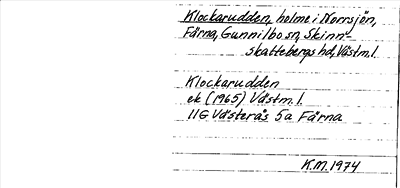 Klockarudden, holme i Norrsjön,
Färna, Gunnilbo sn, Skinn-
skattebergs hd, Västm.l.
Klockarudden
ek (1965) Västm.l.
11G Västerås 5a Färna
K.M. 1974